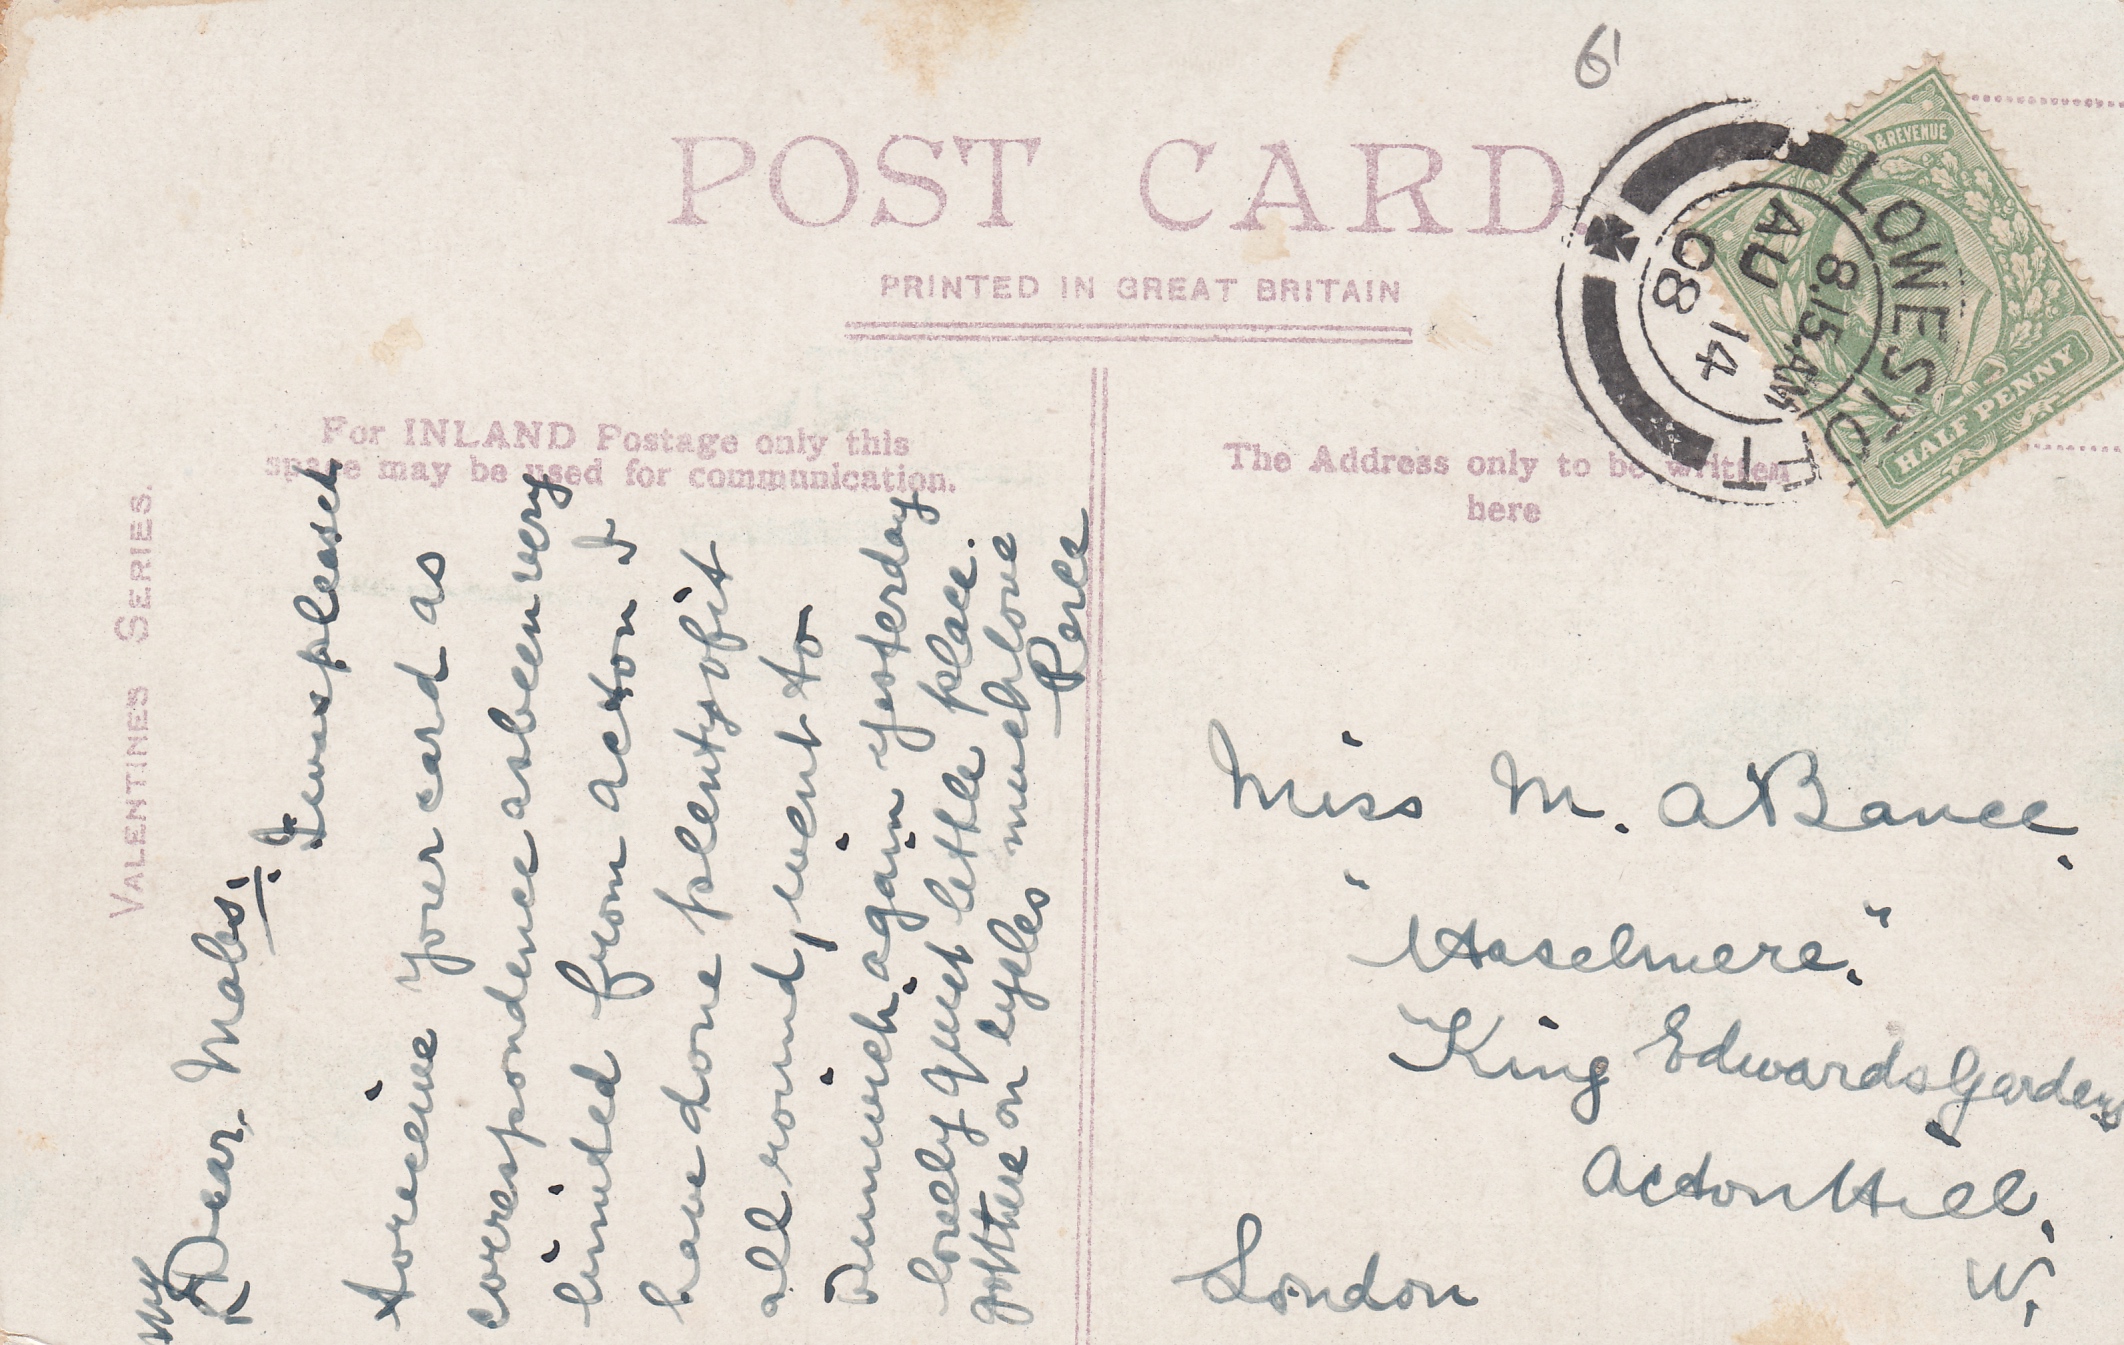 6
POST CARD.
PRINTED IN GREAT BRITAIN
VALENTINES SERIES.
For INLAND Postage only this
space may be used for communication.
The Address only to be written
here
& REVENUE
HALF PENNY
LOWESTOFT
8.15 AM
AU 14
08
My
Dear Mabs:
I was pleased
to receive your card as
correspondence as been very
limited from acton I
have done plenty of it
all round, went to
Dunwich again yesterday
lovely quiet little place.
got there on cycles much love
Perce
Miss M. A Bance,
"Haselmere."
King Edwards Gardens
Acton Hill,
London W.